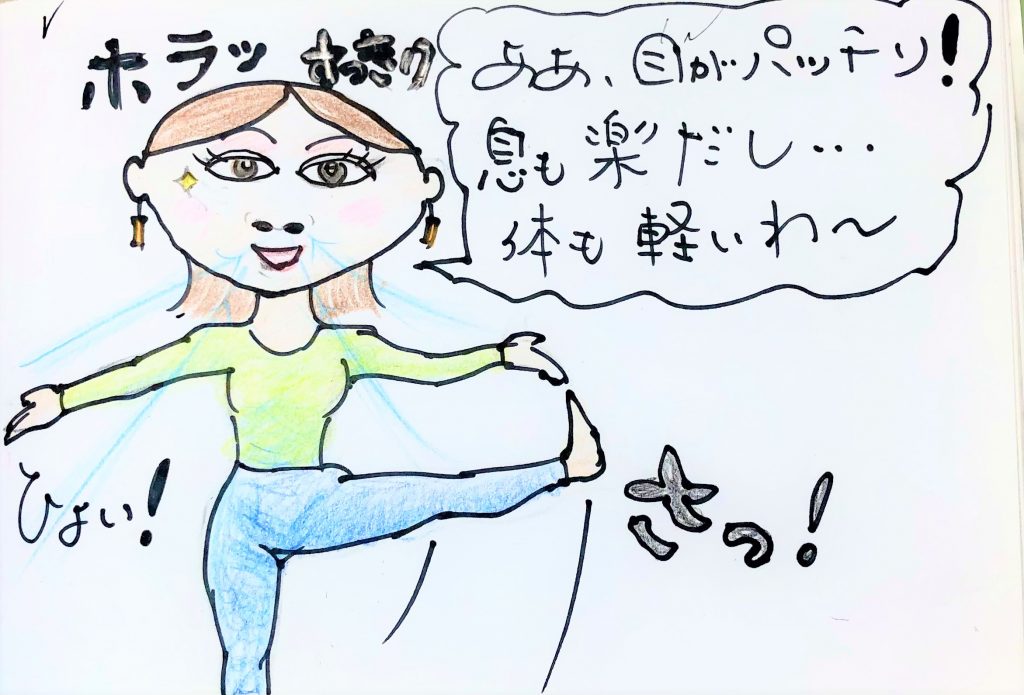 ホラッ すっきり
ああ、目がパッチリ!
息も楽だし...
体も軽いわ〜
ひょい!
さっ!